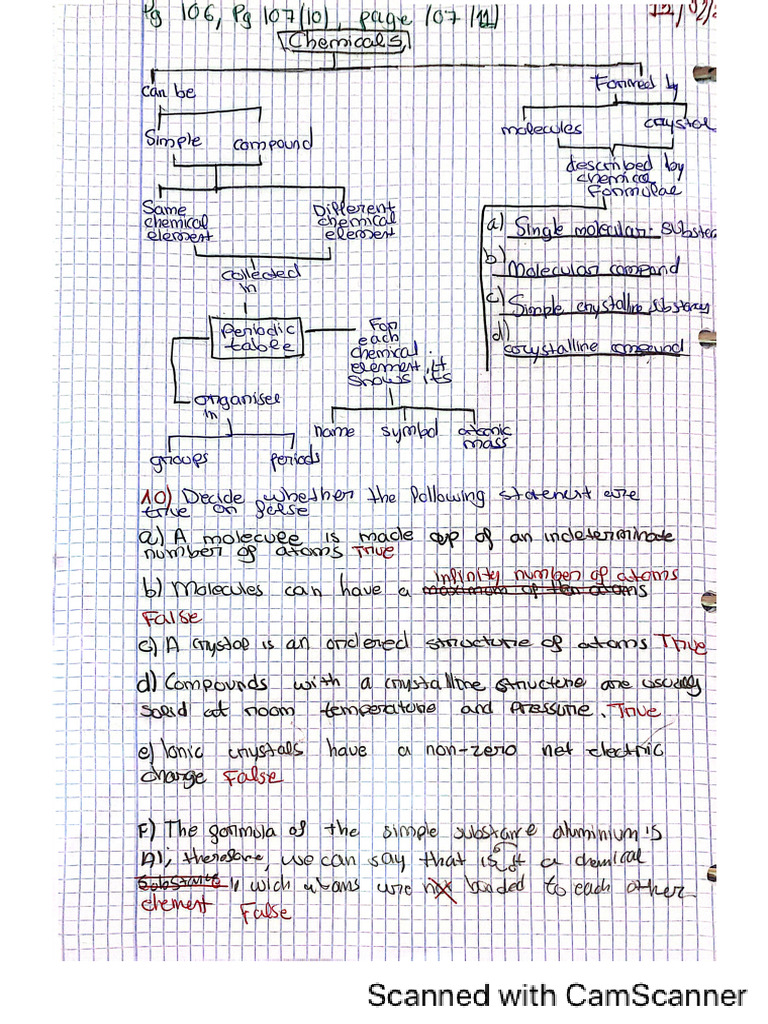 Pg 106, Pg 107(10), page 107 (11)
12/02/2
Chemicals,
can be
Formed by
Simple compound
molecules crystal
described by
chemica
formulae
Same
chemical
element
Different
chemical
element
a) Single molecular substan
b)
Molecular compand
c) Simple crystalline substancy
d)
corystalline compound
collected
in
Periodic
tabee
For
each
chemical
element, it
shows its
organisee
in
name symbol atomic
mass
groups periods
10) Decide whether the following statement are
true or false
a) A molecule is made op of an indeterminate
number of atoms True
infinity number of atoms
b) Molecules can have a maximum of ten atoms
False
c) A crystal is an ordered structure of atoms True
d) Compounds with a crystalline structere are usually
solid at room temperature and pressure. True
e) Ionic crystals have a non-zero net electric
charge False
F) The formula of the simple substance aluminium is
Al; therefore, we can say that is it a chemical
substance, wich atoms are not bonded to each other
element False
Scanned with CamScanner